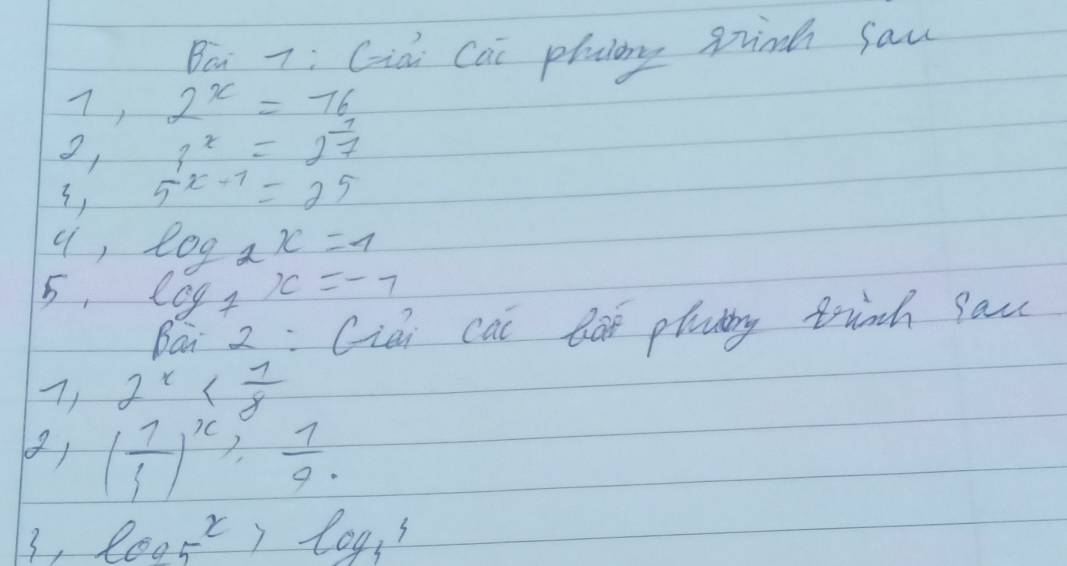 Bài 1: Giải các phương trình sau
1, 2^x = 16
2, 3^x = 1/27
3, 5^{x-1} = 25
4, log_2 x = 1
5, log_7 x = -1
Bài 2: Giải các bất phương trình sau
1, 2^x < 1/8
2, (1/3)^x > 1/9.
3, log_5^x > log_5^3